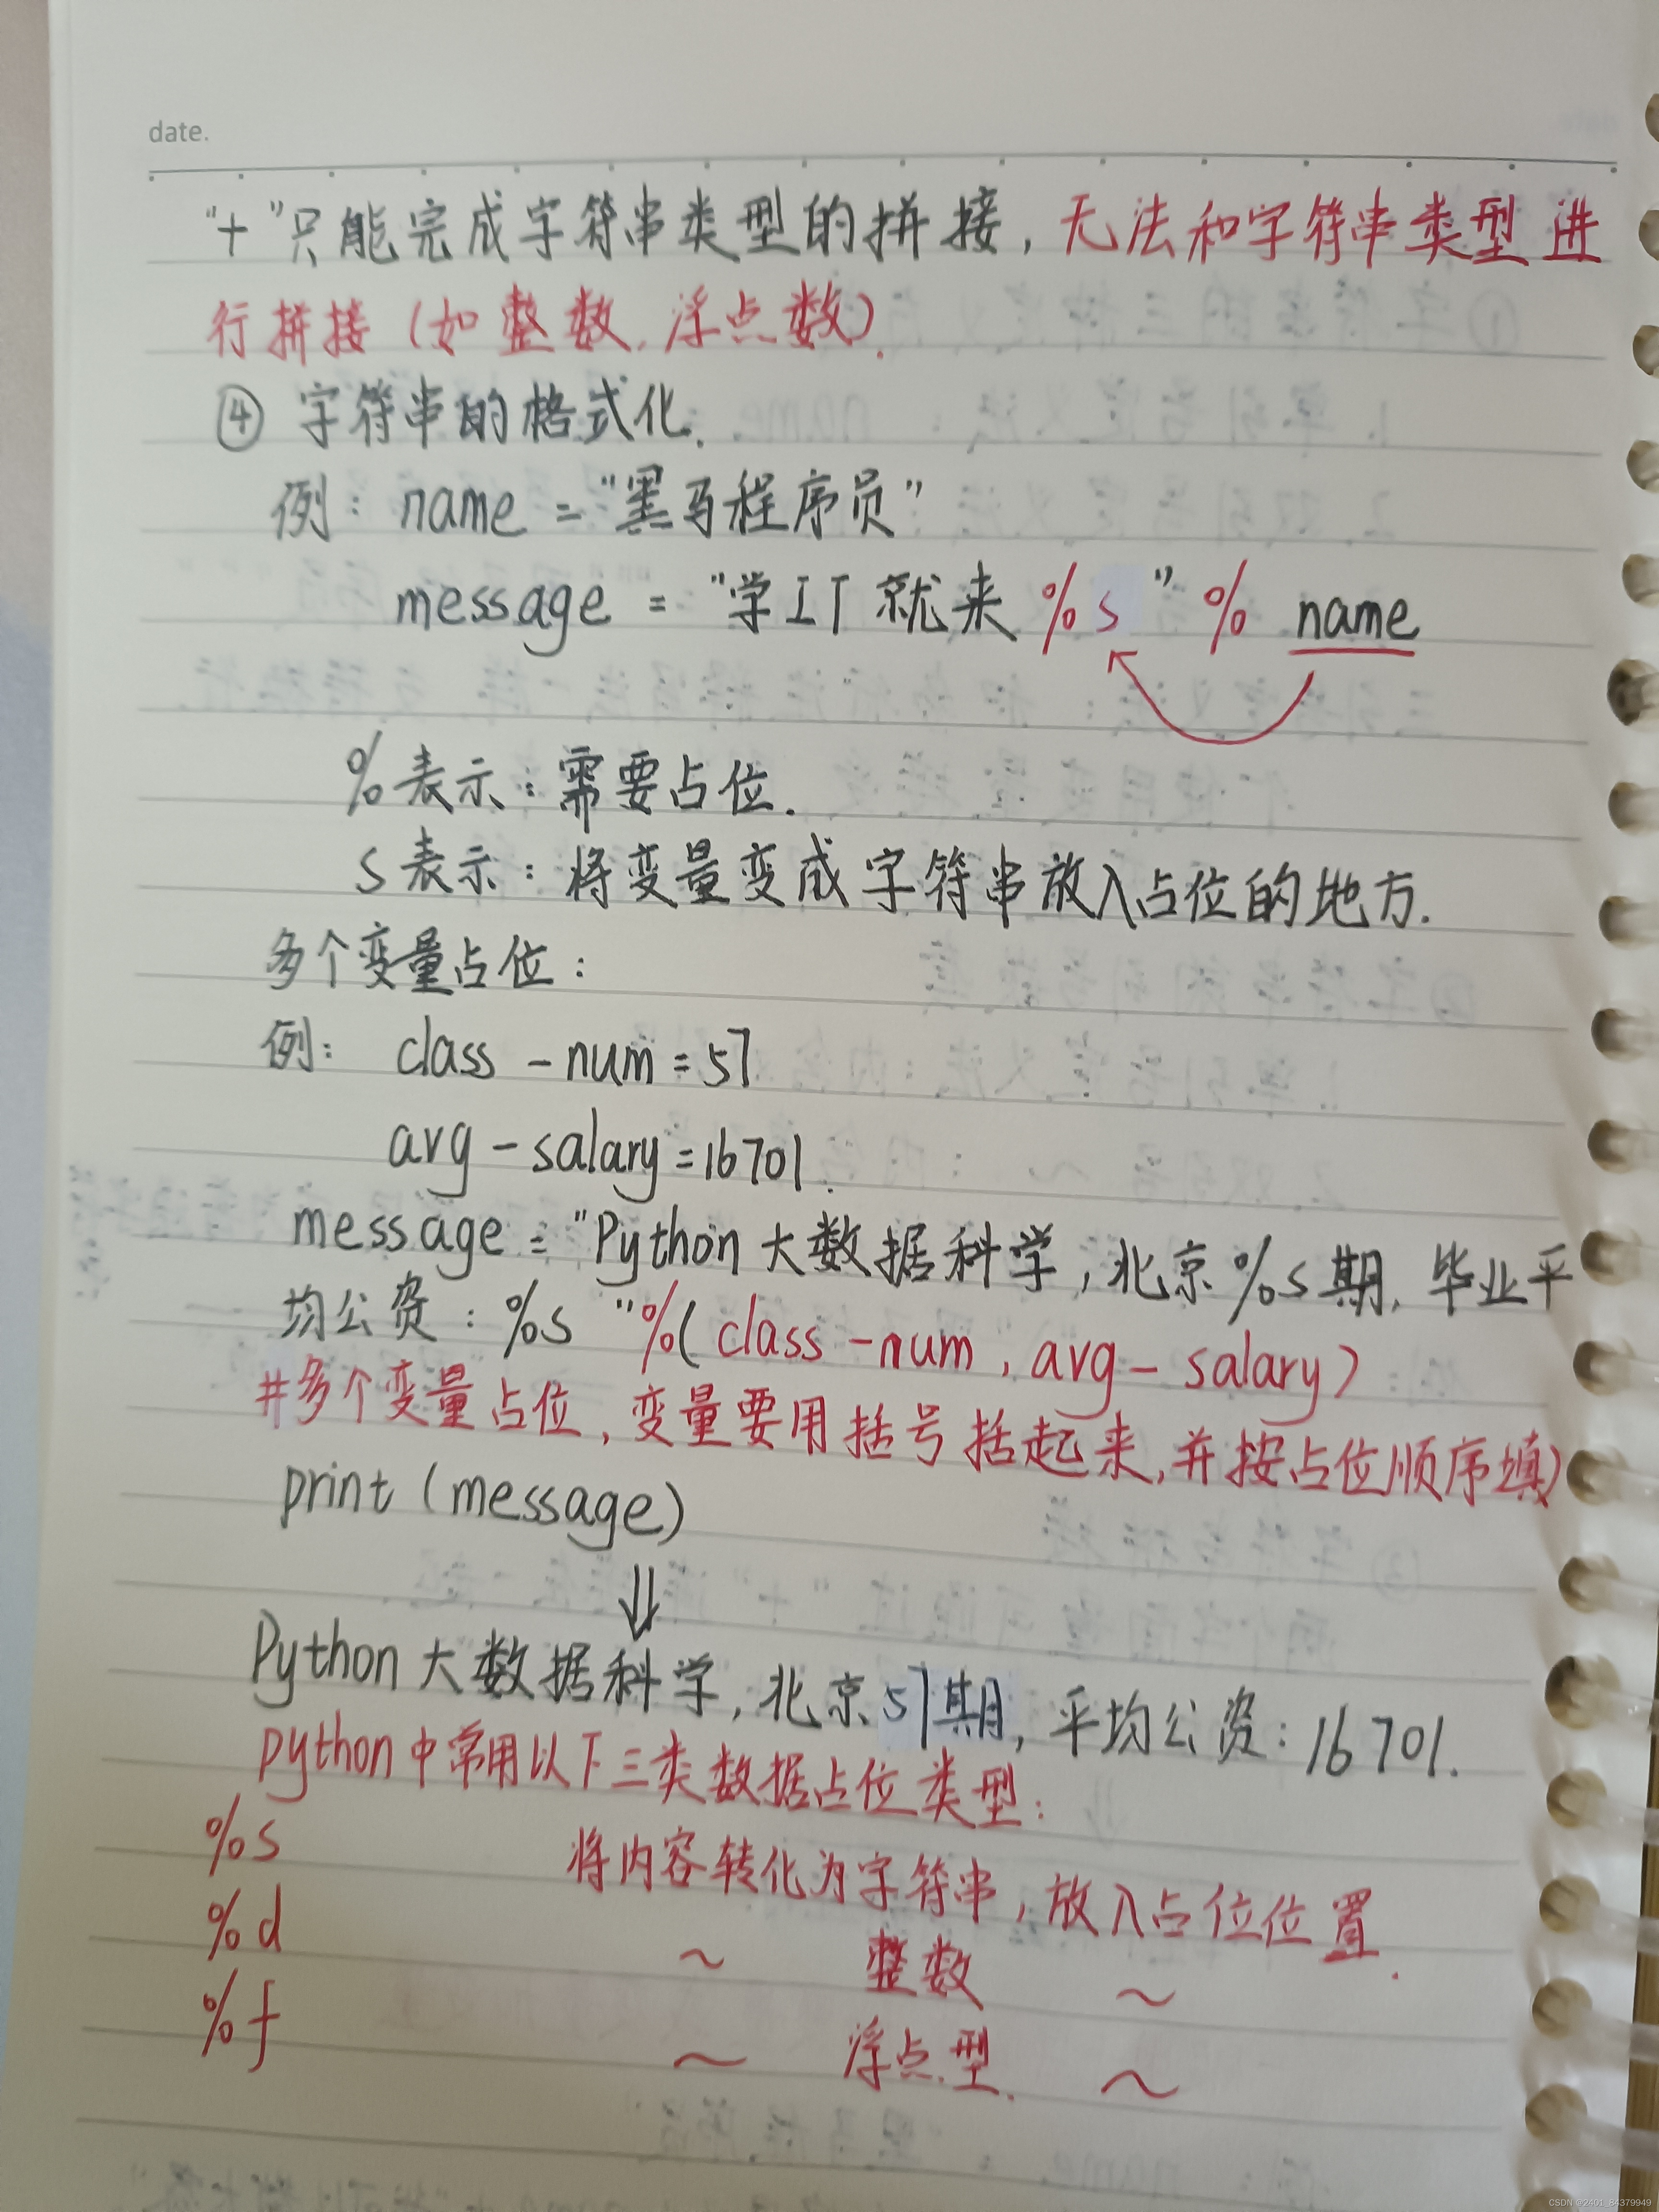 date.
"+"只能完成字符串类型的拼接，无法和字符串类型进
行拼接（如整数、浮点数）.
④ 字符串的格式化.
例：name = "黑马程序员"
message = "学IT就来%s" % name
%表示：需要占位.
s表示：将变量变成字符串放入占位的地方.
多个变量占位：
例：class-num=57
avg-salary=16701.
message = "Python大数据科学，北京%s期，毕业平
均公资：%s"%(class-num, avg-salary)
#多个变量占位，变量要用括号括起来，并按占位顺序填)
print(message)
⇓
Python大数据科学，北京57期，平均公资：16701.
python中常用以下三类数据占位类型：
%s 将内容转化为字符串，放入占位位置.
%d ~ 整数 ~
%f ~ 浮点型. ~
CSDN @2401_84379949